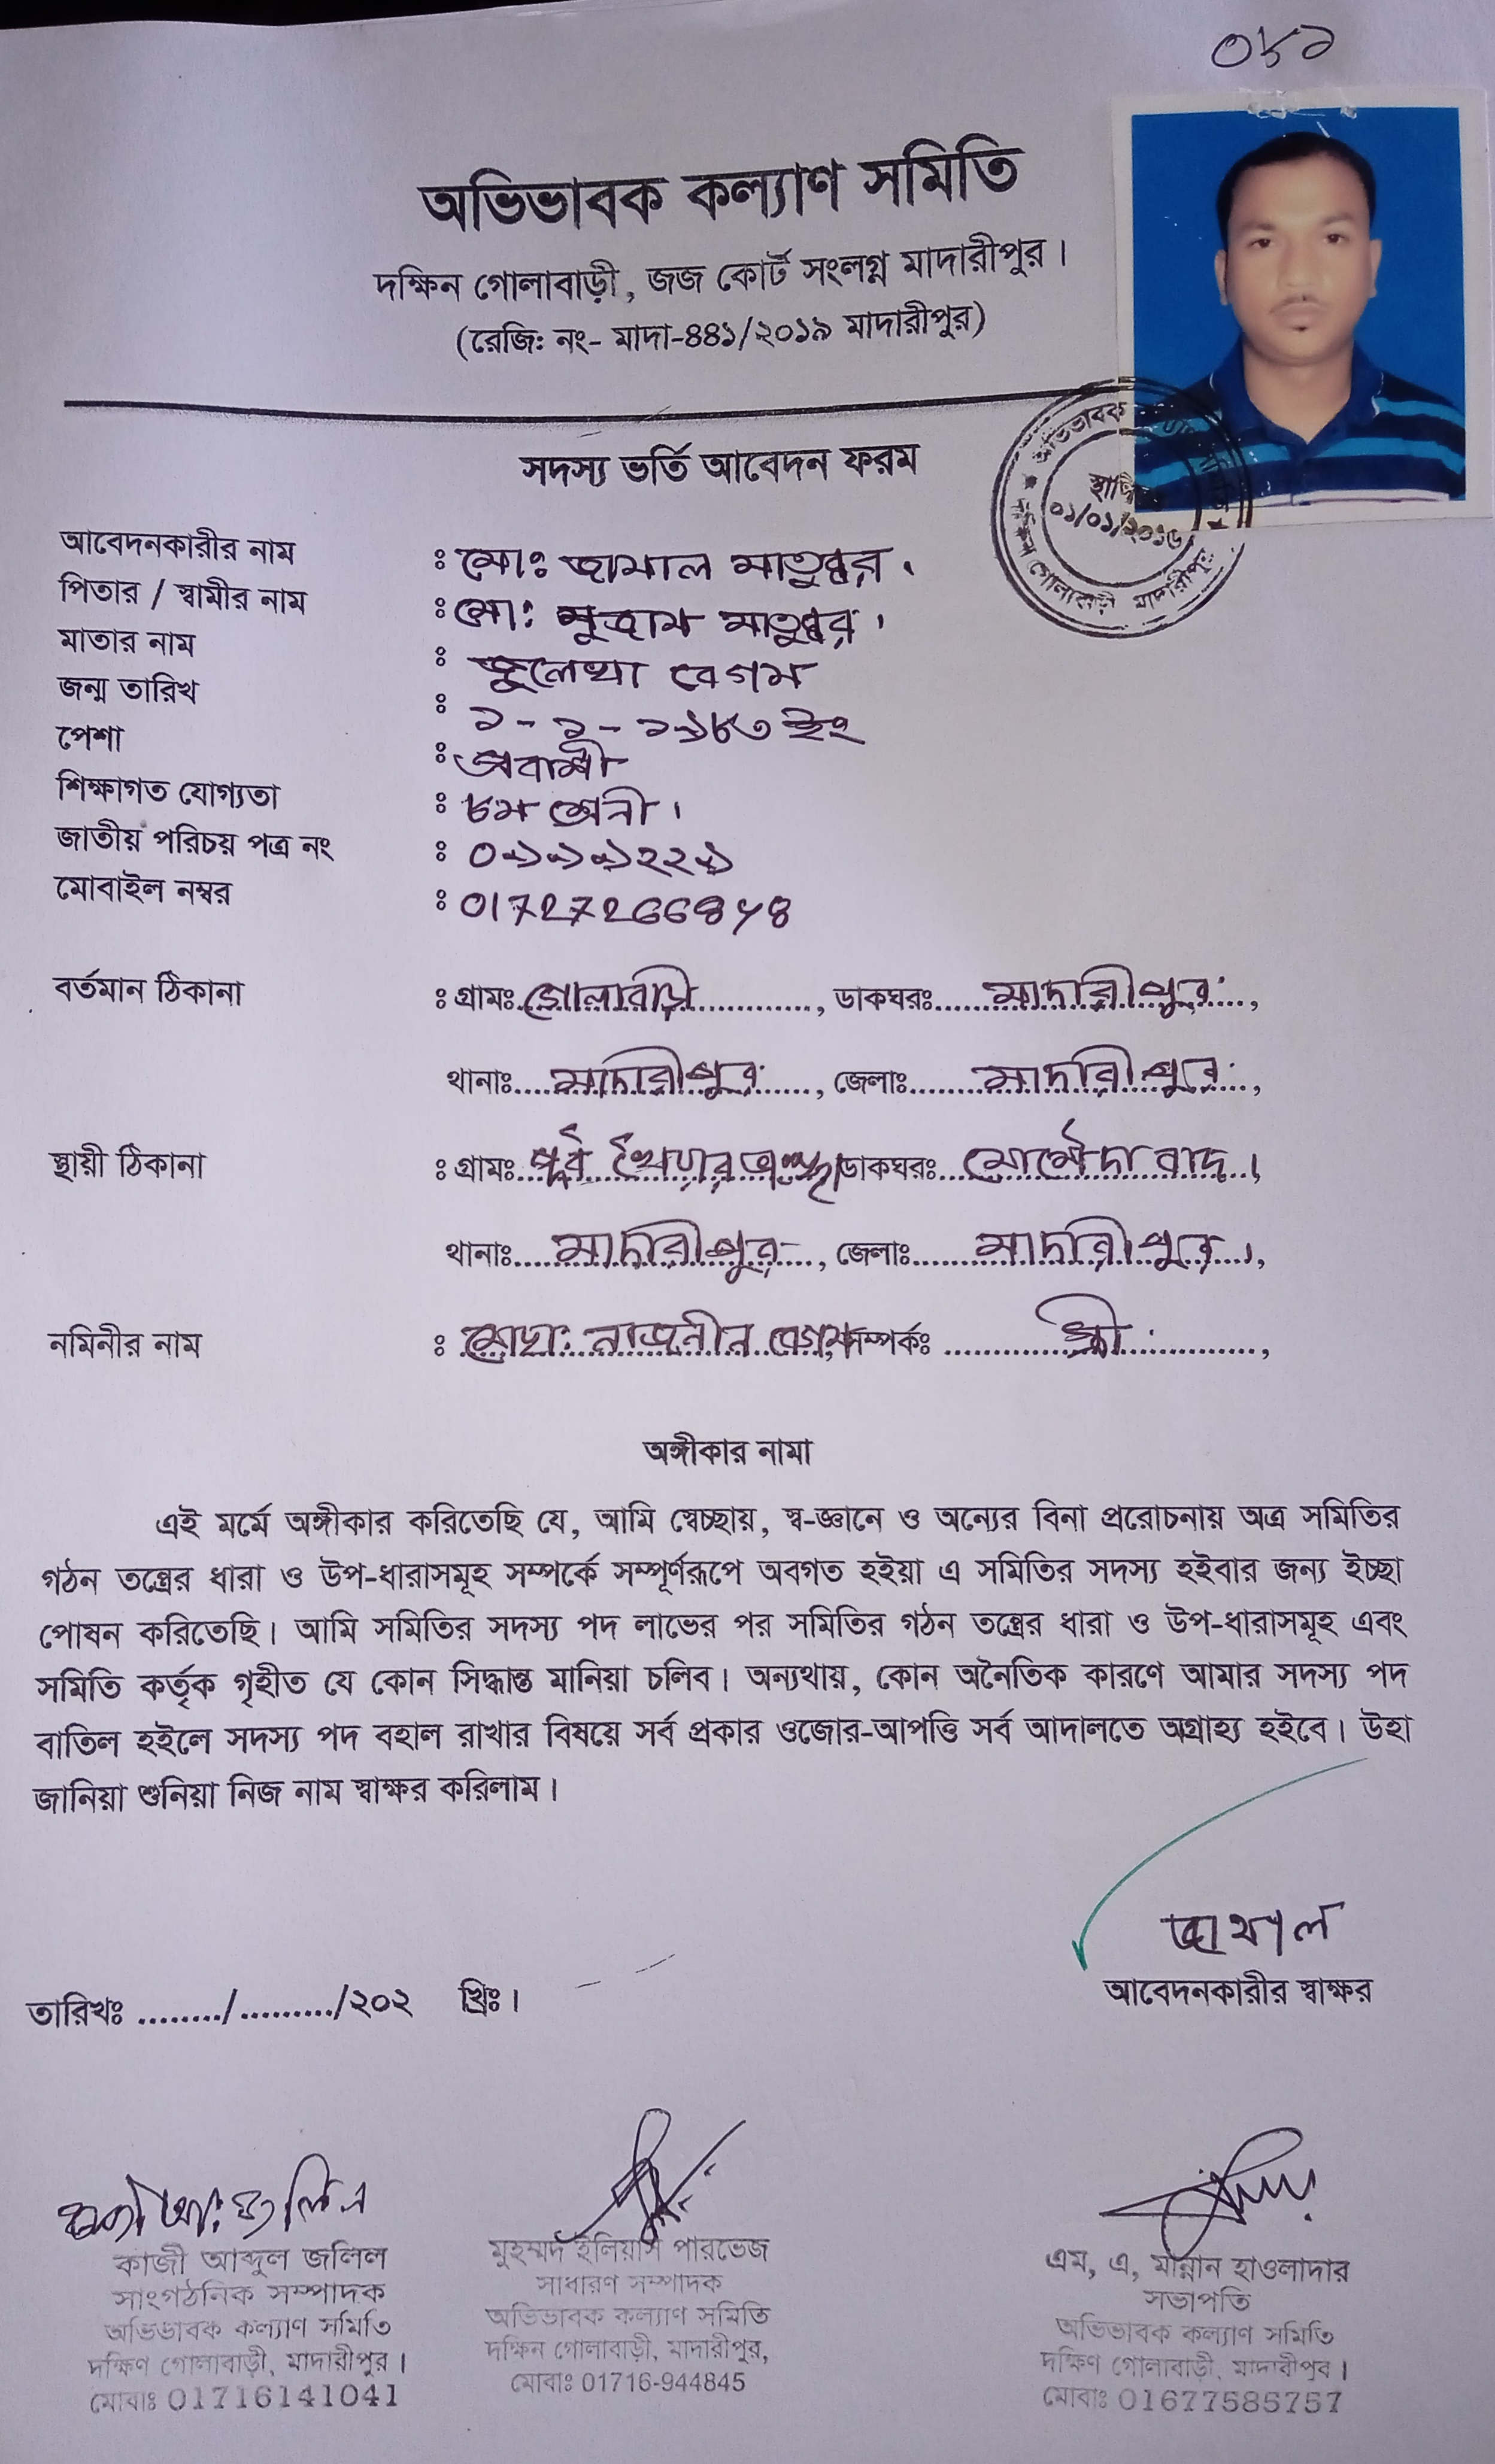 ০৮১
অভিভাবক কল্যাণ সমিতি
দক্ষিন গোলাবাড়ী, জজ কোর্ট সংলগ্ন মাদারীপুর।
(রেজি: নং- মাদা-৪৪১/২০১৯ মাদারীপুর)
সদস্য ভর্তি আবেদন ফরম
অভিভাবক
স্থাপিত
০১/০১/২০১৬
দক্ষিণ গোলাবাড়ী মাদারীপুর
আবেদনকারীর নাম : মোঃ জামাল মাতুব্বর।
পিতার / স্বামীর নাম : মো: মাতুব্বর।
মাতার নাম : জুলেখা বেগম
জন্ম তারিখ : ১-১-১৯৮৩ ইং
পেশা : প্রবাসী
শিক্ষাগত যোগ্যতা : ৮ম শ্রেনী।
জাতীয় পরিচয় পত্র নং :
মোবাইল নম্বর : 01727266848
বর্তমান ঠিকানা : গ্রামঃ গোলাবাড়ী, ডাকঘরঃ মাদারীপুর,
থানাঃ মাদারীপুর, জেলাঃ মাদারীপুর,
স্থায়ী ঠিকানা : গ্রামঃ পূর্ব ডাকঘরঃ
থানাঃ মাদারীপুর, জেলাঃ মাদারীপুর,
নমিনীর নাম : মোছা: নাজনীন বেগম, সম্পর্কঃ স্ত্রী,
অঙ্গীকার নামা
এই মর্মে অঙ্গীকার করিতেছি যে, আমি স্বেচ্ছায়, স্ব-জ্ঞানে ও অন্যের বিনা প্ররোচনায় অত্র সমিতির
গঠন তন্ত্রের ধারা ও উপ-ধারাসমূহ সম্পর্কে সম্পূর্ণরূপে অবগত হইয়া এ সমিতির সদস্য হইবার জন্য ইচ্ছা
পোষন করিতেছি। আমি সমিতির সদস্য পদ লাভের পর সমিতির গঠন তন্ত্রের ধারা ও উপ-ধারাসমূহ এবং
সমিতি কর্তৃক গৃহীত যে কোন সিদ্ধান্ত মানিয়া চলিব। অন্যথায়, কোন অনৈতিক কারণে আমার সদস্য পদ
বাতিল হইলে সদস্য পদ বহাল রাখার বিষয়ে সর্ব প্রকার ওজোর-আপত্তি সর্ব আদালতে অগ্রাহ্য হইবে। উহা
জানিয়া শুনিয়া নিজ নাম স্বাক্ষর করিলাম।
জামাল
আবেদনকারীর স্বাক্ষর
তারিখঃ ......../........./২০২ খ্রিঃ।
কাজী আব্দুল জলিল
সাংগঠনিক সম্পাদক
অভিভাবক কল্যাণ সমিতি
দক্ষিণ গোলাবাড়ী, মাদারীপুর।
মোবাঃ 01716141041
মুহম্মদ ইলিয়াস পারভেজ
সাধারণ সম্পাদক
অভিভাবক কল্যাণ সমিতি
দক্ষিন গোলাবাড়ী, মাদারীপুর,
মোবাঃ 01716-944845
এম, এ, মান্নান হাওলাদার
সভাপতি
অভিভাবক কল্যাণ সমিতি
দক্ষিণ গোলাবাড়ী, মাদারীপুর।
মোবাঃ 01677585757